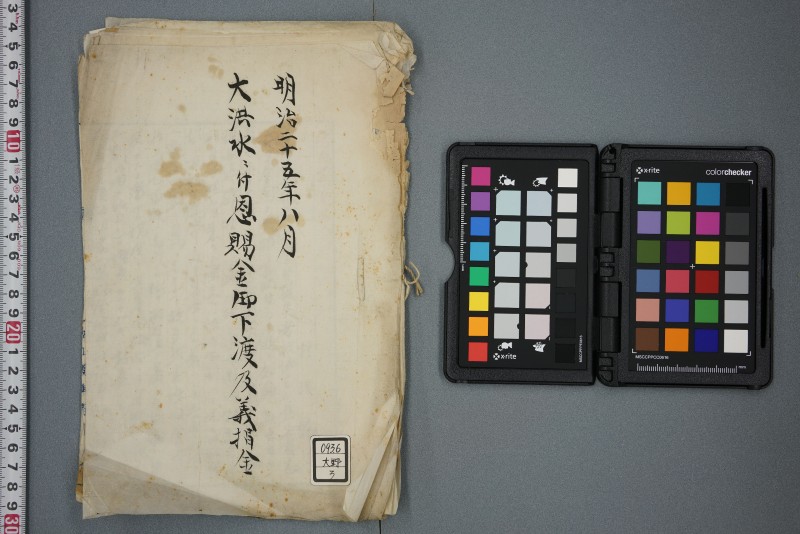 明治二十五年八月
大洪水ニ付恩賜金御下渡及義捐金
0936
大野
3 4 5 6 7 8 9 10 1 2 3 4 5 6 7 8 9 20 1 2 3 4 5 6 7 8 9 30
x-rite
x-rite
x-rite colorchecker
mm